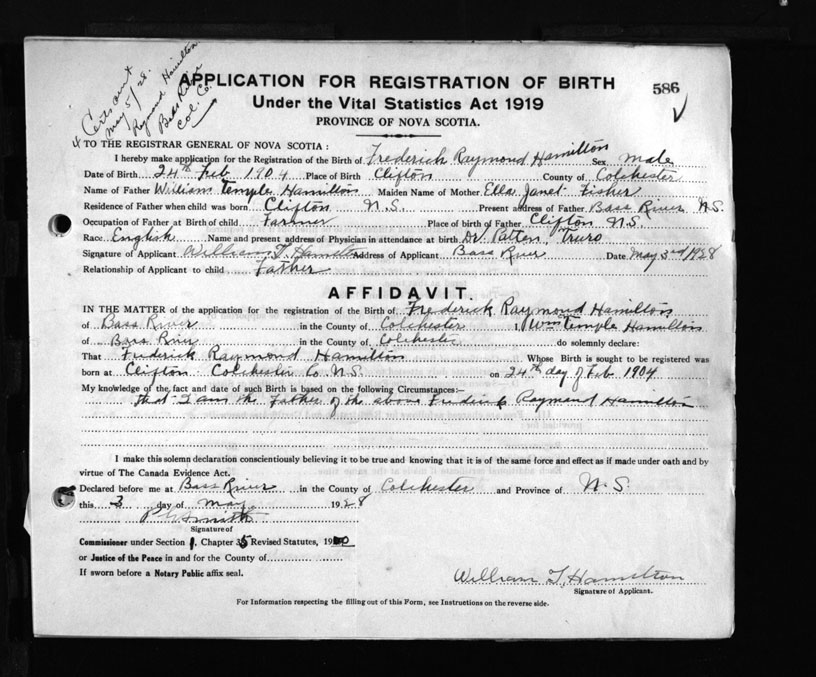 Certs out
May 5/28.
Raymond Hamilton
Bass River
Col. Co.
APPLICATION FOR REGISTRATION OF BIRTH
586
Under the Vital Statistics Act 1919
PROVINCE OF NOVA SCOTIA.
TO THE REGISTRAR GENERAL OF NOVA SCOTIA:
I hereby make application for the Registration of the Birth of Frederick Raymond Hamilton Sex Male
Date of Birth 24th Feb 1904 Place of Birth Clifton County of Colchester
Name of Father William Temple Hamilton Maiden Name of Mother Ella Janet Fisher
Residence of Father when child was born Clifton N.S. Present address of Father Bass River N.S.
Occupation of Father at Birth of child Farmer Place of birth of Father Clifton N.S.
Race English Name and present address of Physician in attendance at birth Dr Patten, Truro
Signature of Applicant William T. Hamilton Address of Applicant Bass River Date May 3rd/1928
Relationship of Applicant to child Father
AFFIDAVIT.
IN THE MATTER of the application for the registration of the Birth of Frederick Raymond Hamilton
of Bass River in the County of Colchester I, Wm Temple Hamilton
of Bass River in the County of Colchester do solemnly declare:
That Frederick Raymond Hamilton Whose Birth is sought to be registered was
born at Clifton Colchester Co N.S. on 24th day of Feb 1904
My knowledge of the fact and date of such Birth is based on the following Circumstances:—
that I am the Father of the above Frederick Raymond Hamilton
I make this solemn declaration conscientiously believing it to be true and knowing that it is of the same force and effect as if made under oath and by
virtue of The Canada Evidence Act.
Declared before me at Bass River in the County of Colchester and Province of N.S.
this 3 day of May 1928
Smith
Signature of
Commissioner under Section 1, Chapter 35 Revised Statutes, 19
or Justice of the Peace in and for the County of
If sworn before a Notary Public affix seal.
William T. Hamilton
Signature of Applicant.
For Information respecting the filling out of this Form, see Instructions on the reverse side.